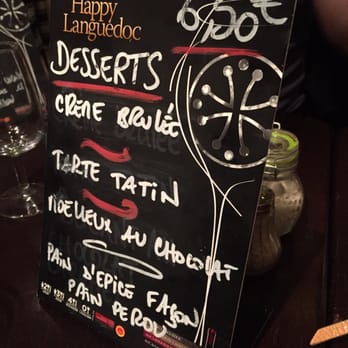 Happy
Languedoc
6,50€
DESSERTS
CRÈME BRULÉE
TARTE TATIN
MOELLEUX AU CHOCOLAT
PAIN D'EPICE FAÇON
PAIN PERDU